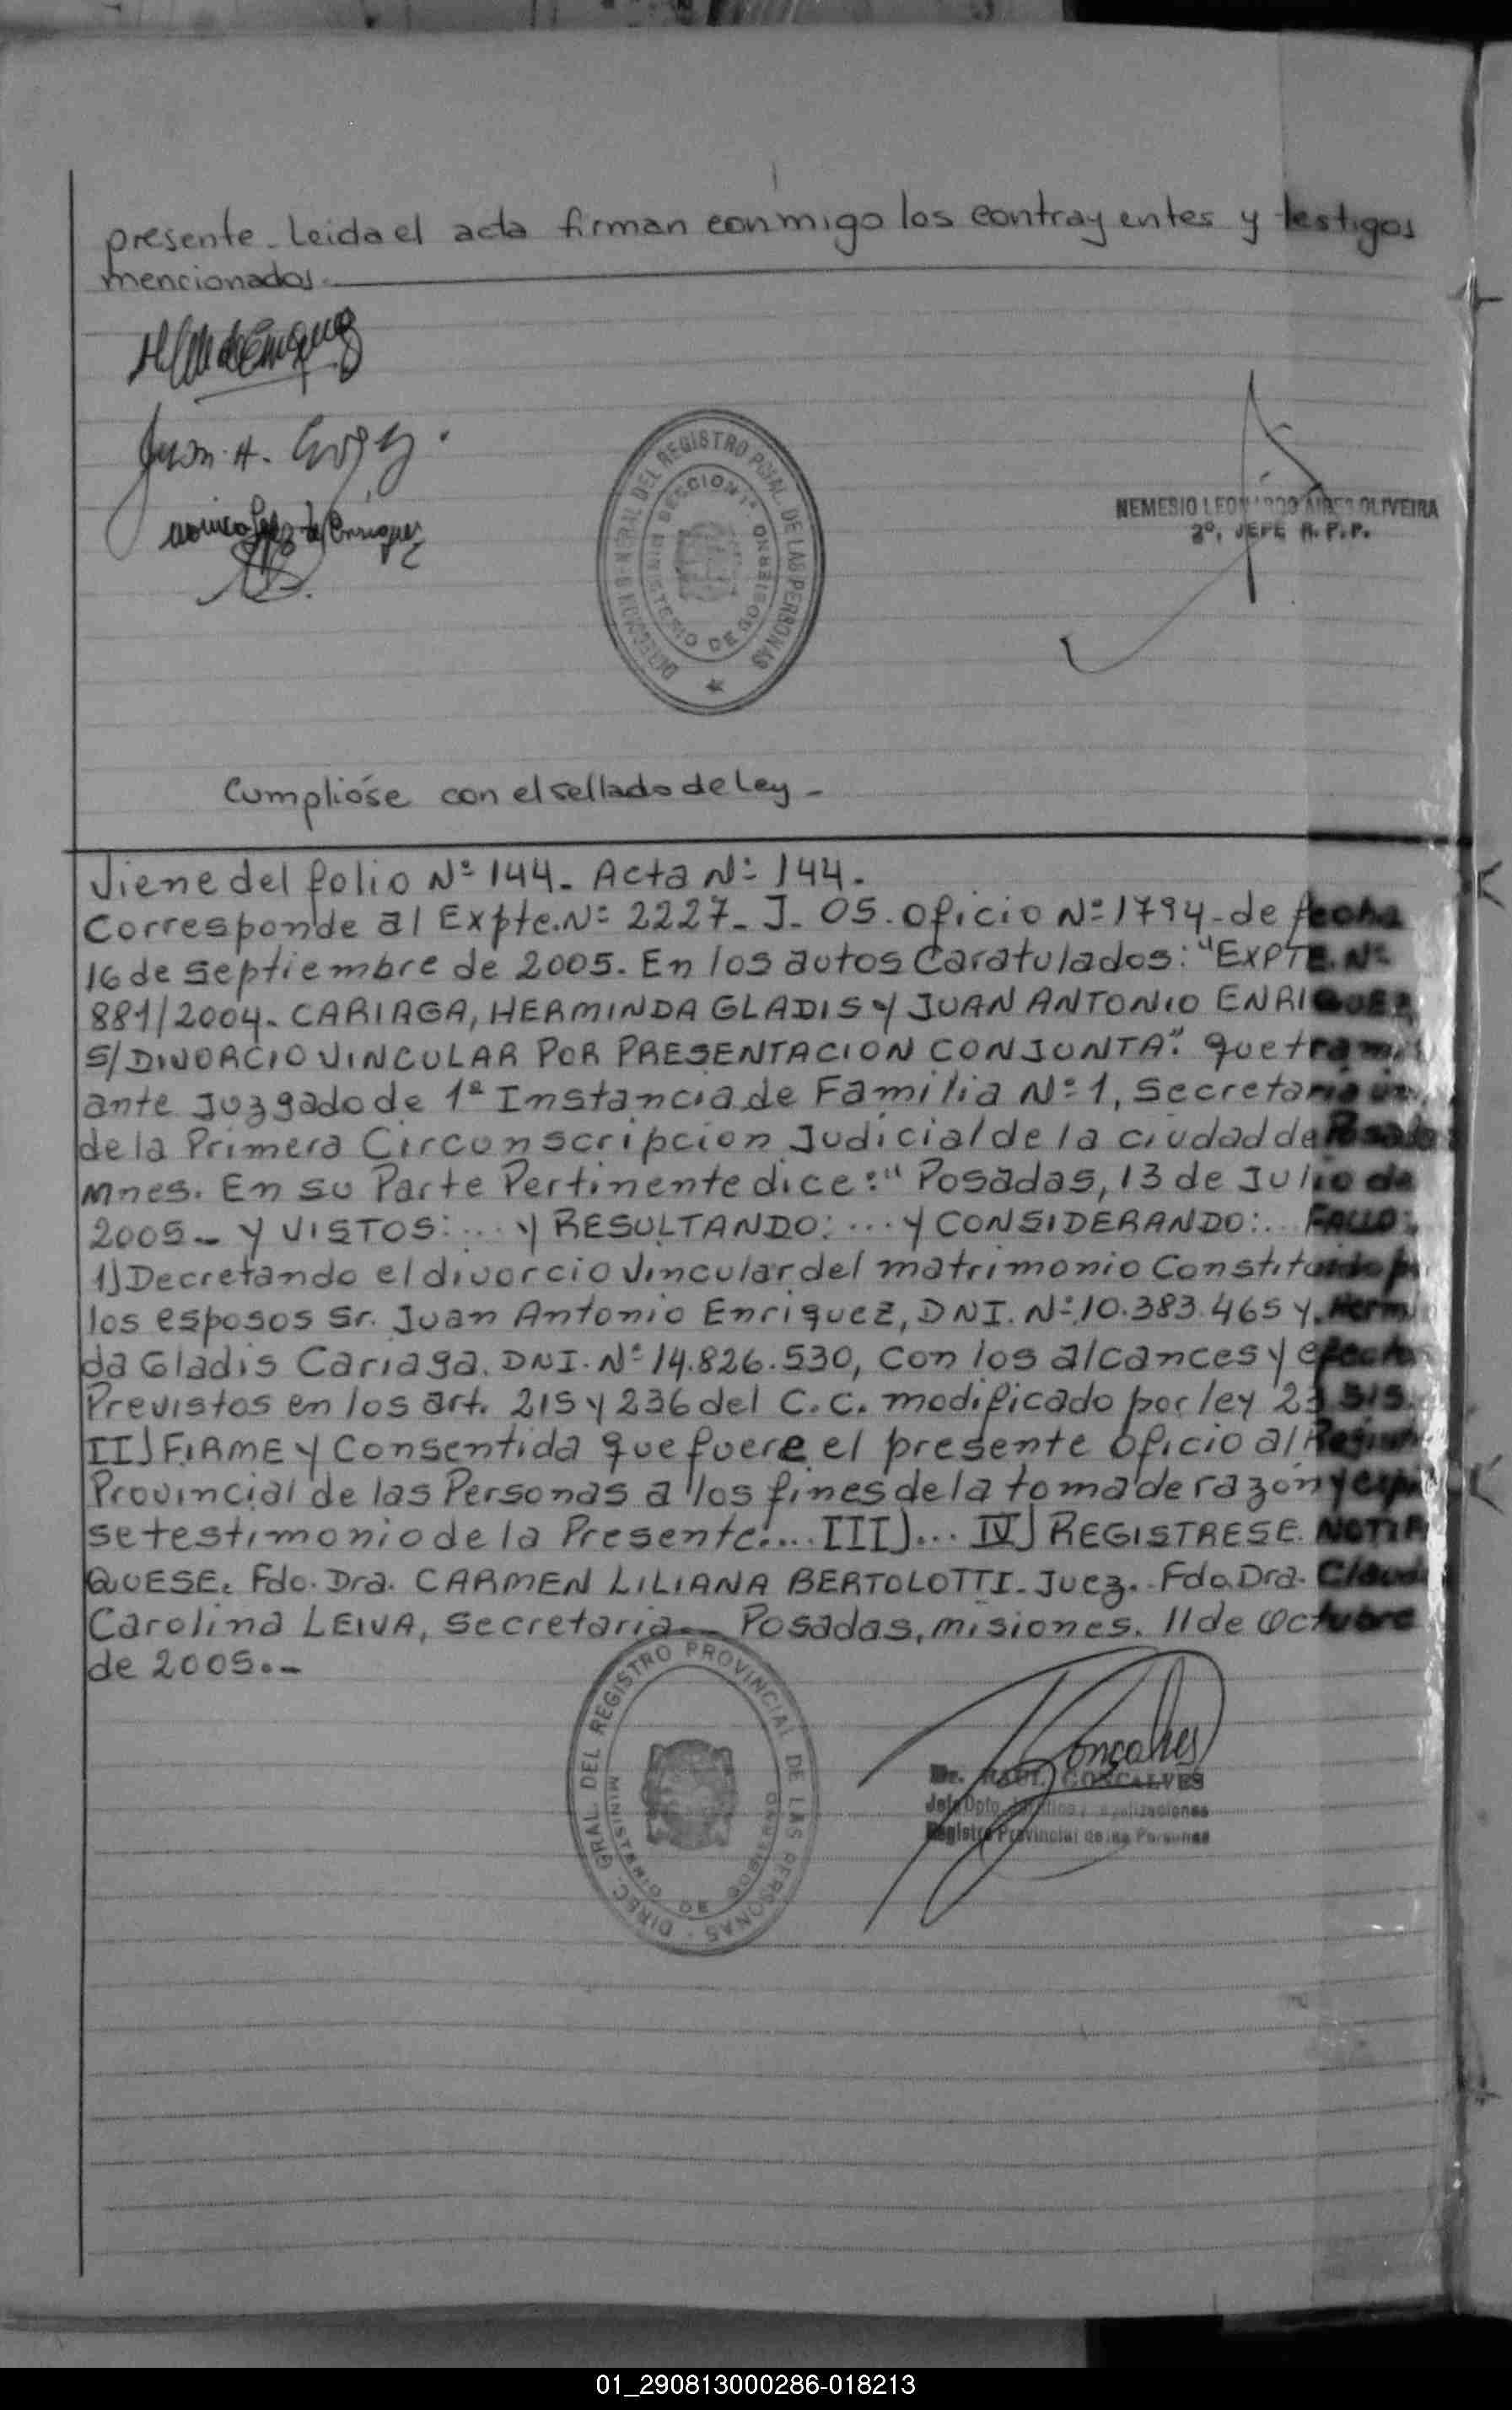 presente. Leida el acta firman conmigo los contrayentes y testigos
mencionados.
Juan A.
DIRECCION GENERAL DEL REGISTRO PCIAL. DE LAS PERSONAS
MINISTERIO DE GOBIERNO
SECCION 1ª
NEMESIO LEONARDO AIRES OLIVEIRA
2º. JEFE R. P. P.
Cumplióse con el sellado de Ley -
Viene del folio Nº 144. Acta Nº 144.
Corresponde al Expte. Nº 2227 - J - 05. Oficio Nº 1794 - de fecha
16 de septiembre de 2005. En los autos Caratulados: "EXPTE. Nº
881/2004. CARIAGA, HERMINDA GLADIS y JUAN ANTONIO ENRIQUEZ
S/ DIVORCIO VINCULAR POR PRESENTACION CONJUNTA". que
ante Juzgado de 1ª Instancia de Familia Nº 1, Secretaria
de la Primera Circunscripcion Judicial de la ciudad de Posadas
Mnes. En su Parte Pertinente dice: " Posadas, 13 de Julio de
2005.- Y VISTOS: ... Y RESULTANDO: ... Y CONSIDERANDO: .. FALLO:
1) Decretando el divorcio Vincular del matrimonio Constituido
los esposos Sr. Juan Antonio Enriquez, DNI. Nº 10.383.465 y Hermin
da Gladis Cariaga. DNI. Nº 14.826.530, con los alcances y efectos
Previstos en los art. 215 y 236 del C.C. modificado por ley 23.515.
II) FIRME y Consentida que fuere el presente oficio al Registro
Provincial de las Personas a los fines de la toma de razón y
se testimonio de la Presente.... III)... IV) REGISTRESE. NOTIFI
QUESE. Fdo. Dra. CARMEN LILIANA BERTOLOTTI. Juez. - Fdo. Dra. Claudia
Carolina LEIVA, Secretaria.- Posadas, misiones. 11 de Octubre
de 2005.-
DIREC. GRAL. DEL REGISTRO PROVINCIAL DE LAS PERSONAS
MINISTERIO DE GOBIERNO
Gonçalves
Dr. RAUL GONÇALVES
Jefe Dpto.
Registro Provincial de las Personas
01_290813000286-018213